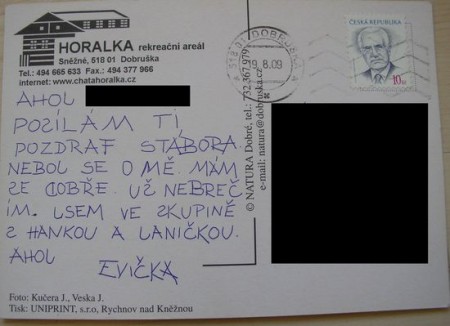 HORALKA rekreační areál
Sněžné, 518 01 Dobruška
Tel.: 494 665 633 Fax.: 494 377 966
internet: www.chatahoralka.cz
518 01 DOBRUŠKA
19. 8. 09
ČESKÁ REPUBLIKA
10 Kč
AHOJ
POZÍLÁM TI
POZDRAF STÁBORA.
NEBOJ SE O MĚ. MÁM
SE DOBŘE. UŽ NEBREČ
ÍM. JSEM VE SKUPINĚ
S HANKOU A LANIČKOU.
AHOJ
EVIČKA
© NATURA Dobré, tel.: 732 367 979
e-mail: natura@dobruska.cz
Foto: Kučera J., Veska J.
Tisk: UNIPRINT, s.r.o, Rychnov nad Kněžnou